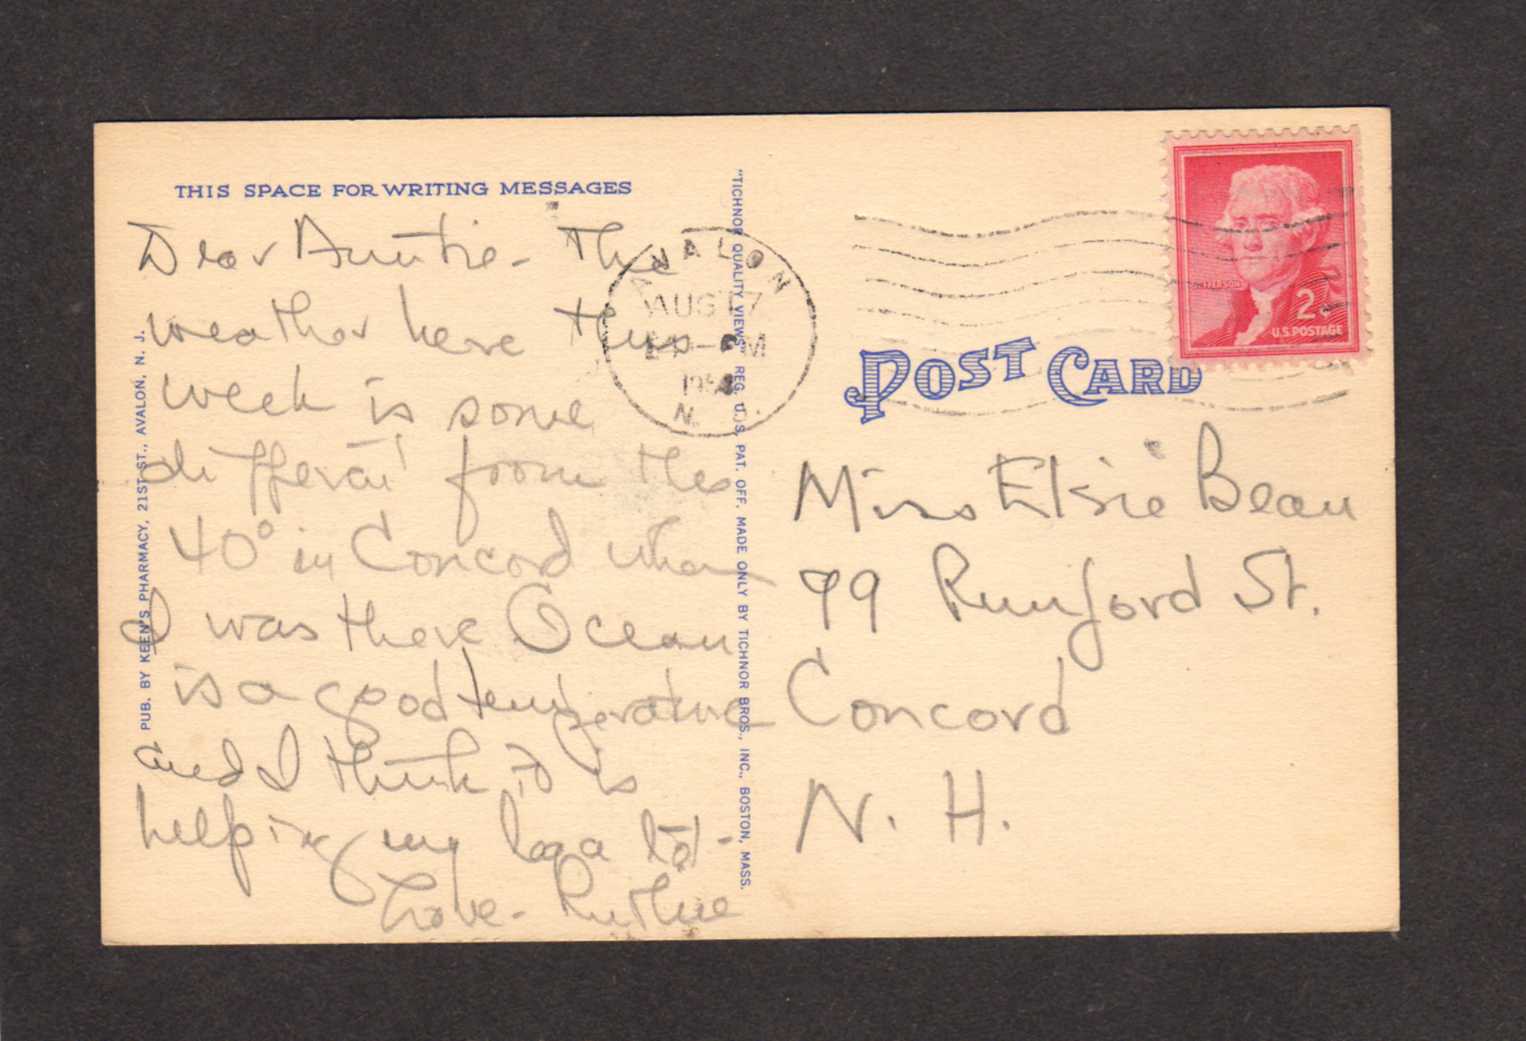 THIS SPACE FOR WRITING MESSAGES
Dear Auntie - The
weather here this
week is some
different from the
40° in Concord when
I was there Ocean
is a good temperature
and I think it is
helping my
Love - Ruthie
PUB. BY KEEN'S PHARMACY, 21ST ST., AVALON, N. J.
"TICHNOR QUALITY VIEWS" REG. U. S. PAT. OFF. MADE ONLY BY TICHNOR BROS., INC., BOSTON, MASS.
AVALON
AUG 17
PM
N.
JEFFERSON
2¢
U.S. POSTAGE
POST CARD
Miss Elsie Bean
79 Rumford St.
Concord
N. H.